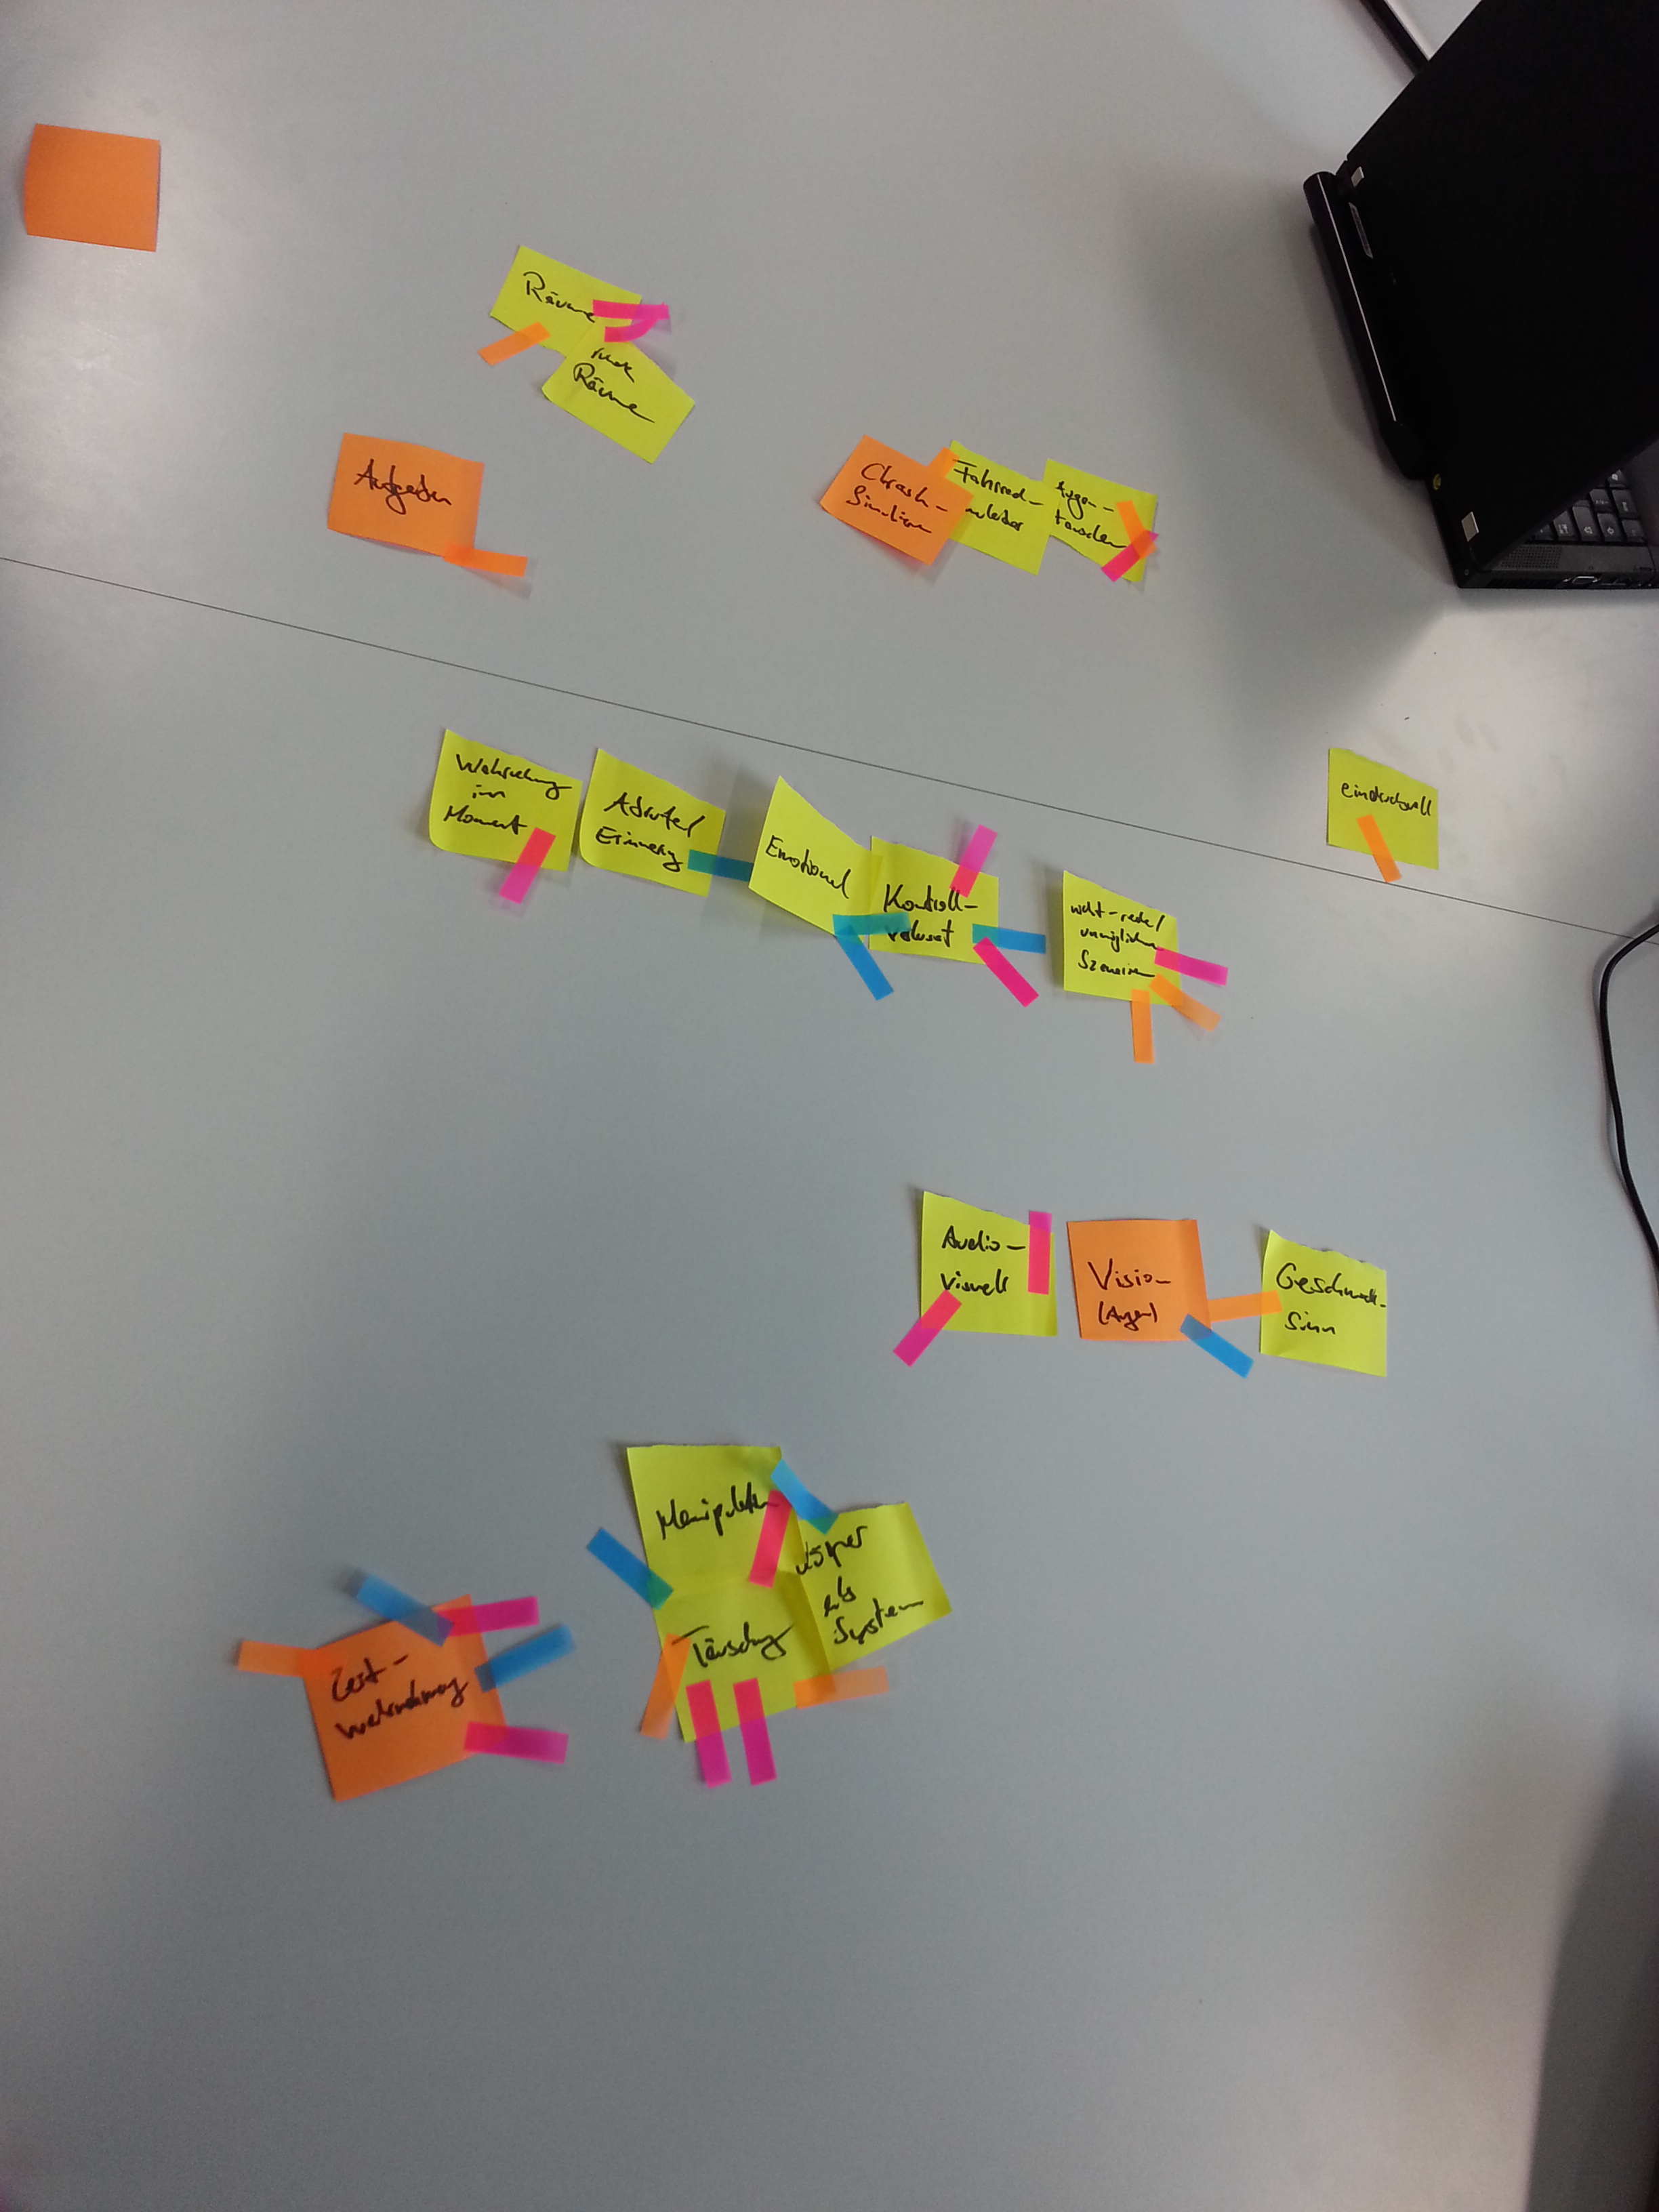 Räume
Räume
Aufgaben
Chrash-
Simulation
Fahrrad-
Augen-
tauschen
Wahrnehmung
im
Moment
Erinnerung
Emotional
Kontroll-
verlust
nicht-reale/
unmögliche
Szenarien
eindrucksvoll
Audio-
Visuell
Vision
(Augen)
Geschmack-
Sinn
Manipulation
Körper
als
System
Täuschung
Zeit-
wahrnehmung